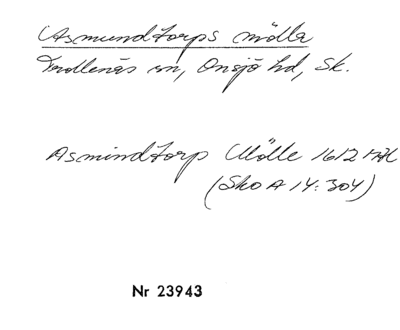 Asmundtorps mölla
Trollenäs sn, Onsjö hd, Sk.
Asmindtorp Mölle 1612
(Sko A 14:304)
Nr 23943